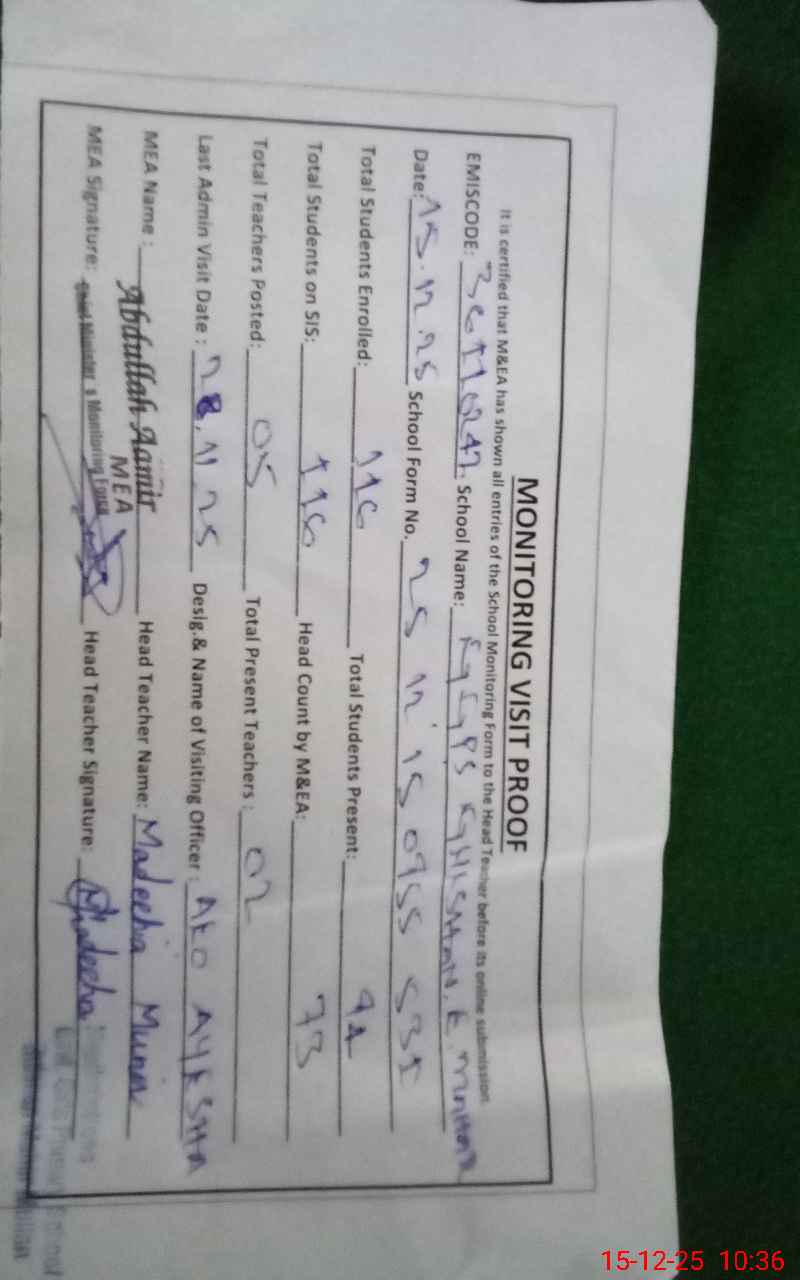 MONITORING VISIT PROOF
It is certified that M&EA has shown all entries of the School Monitoring Form to the Head Teacher before its online submission
EMISCODE: School Name:
Date: 15.12.25 School Form No. 25 12 15 0955 535
Total Students Enrolled: 116 Total Students Present: 94
Total Students on SIS: 116 Head Count by M&EA: 73
Total Teachers Posted: 05 Total Present Teachers : 02
Last Admin Visit Date : 28.11.25 Desig.& Name of Visiting Officer : AEO AYESHA
MEA Name : Abdullah Aamir Head Teacher Name: Madeeha Munir
MEA
MEA Signature: Chief Minister's Monitoring Force Head Teacher Signature: Madeeha
15-12-25 10:36